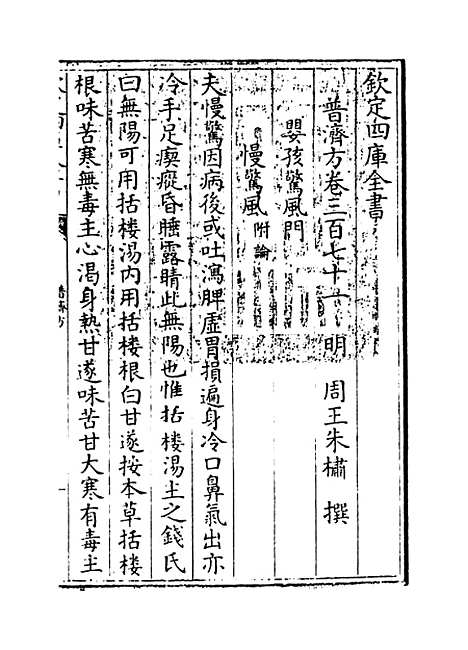 欽定四庫全書
普濟方卷三百七十一 明 周王朱橚 撰
嬰孩驚風門
慢驚風附論
夫慢驚因病後或吐瀉脾虛胃損遍身冷口鼻氣出亦
冷手足瘈瘲昏睡露睛此無陽也惟括楼湯主之錢氏
曰無陽可用括楼湯內用括楼根白甘遂按本草括楼
根味苦寒無毒主心渴身熱甘遂味苦甘大寒有毒主